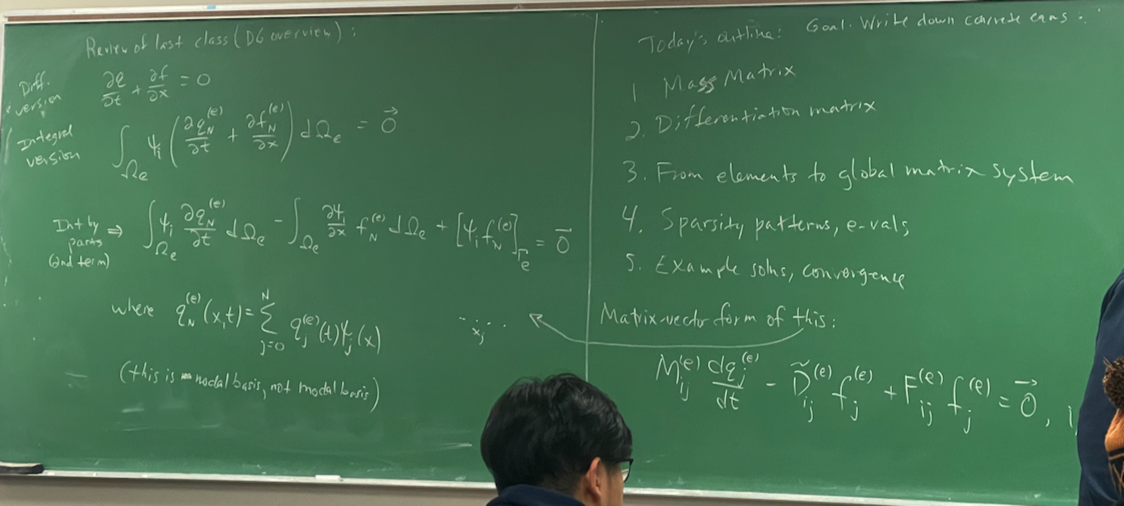 Review of last class (DG overview):
Diff. version ∂q/∂t + ∂f/∂x = 0
Integral version ∫_{Ω_e} ψ_i (∂q_N^{(e)}/∂t + ∂f_N^{(e)}/∂x) dΩ_e = 0⃗
Int by parts (2nd term) ⇒ ∫_{Ω_e} ψ_i ∂q_N^{(e)}/∂t dΩ_e - ∫_{Ω_e} ∂ψ_i/∂x f_N^{(e)} dΩ_e + [ψ_i f_N^{(e)}]_{Γ_e} = 0⃗
where q_N^{(e)}(x,t) = Σ_{j=0}^{N} q_j^{(e)}(t) ψ_j(x)
(this is nodal basis, not modal basis)
Today's outline: Goal: Write down concrete eqns.
1 Mass Matrix
2. Differentiation matrix
3. From elements to global matrix system
4. Sparsity patterns, e-vals,
5. Example solns, convergence
Matrix-vector form of this:
M_{ij}^{(e)} dq_j^{(e)}/dt - D̃_{ij}^{(e)} f_j^{(e)} + F_{ij}^{(e)} f_j^{(e)} = 0⃗,